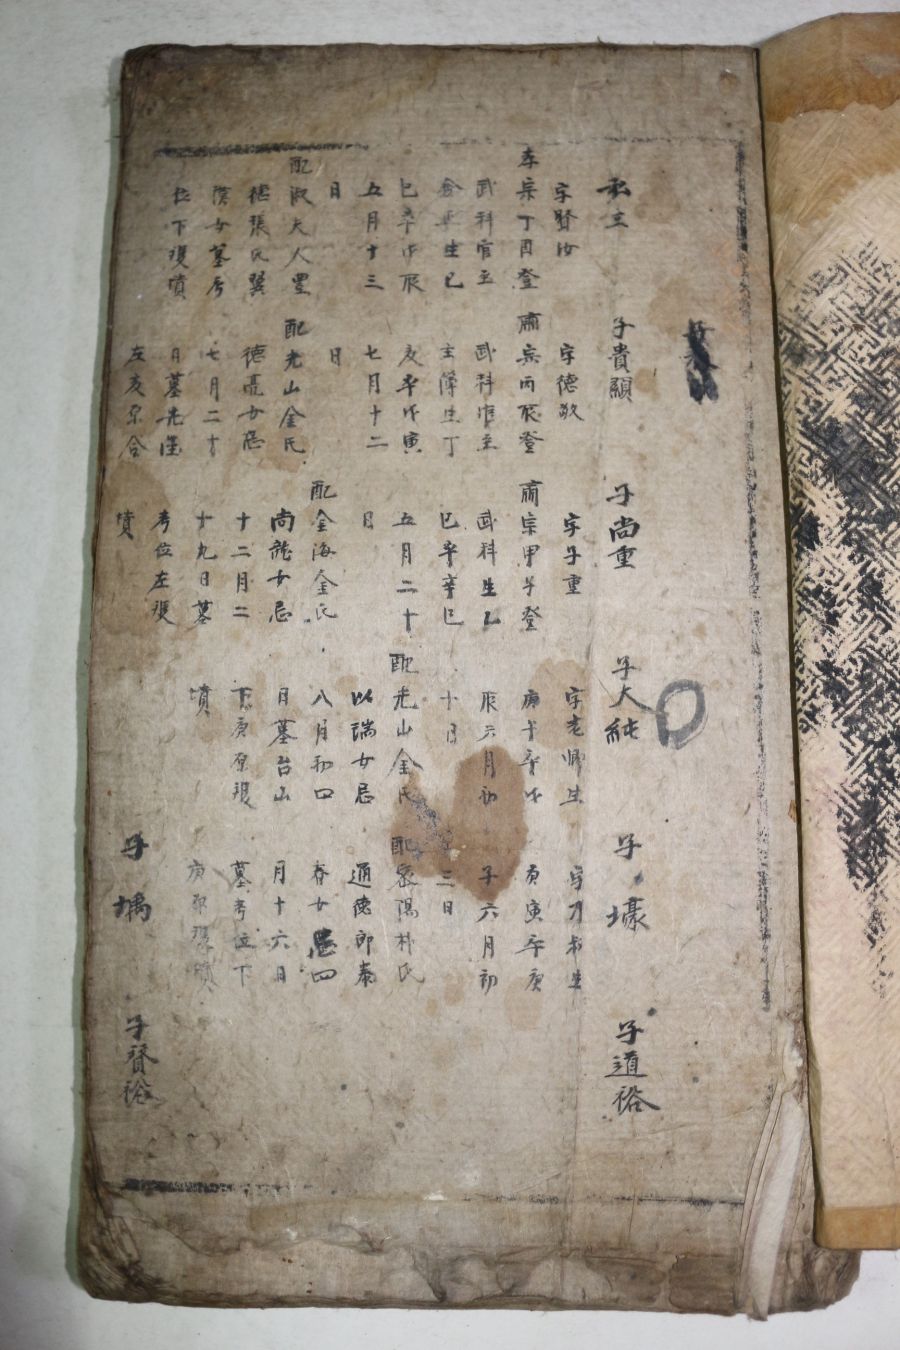 字賢汝
孝宗丁酉登
武科官至
生己
巳卒戊辰
五月十三
日
配淑夫人豊
德張氏翼
漢女墓考
位下双墳
子貴顯
字德敬
肅宗丙辰登
武科
主簿生丁
亥卒戊寅
七月十二
日
配光山金氏
德亮女忌
七月二十
日墓先塋
左亥原合
墳
子尚重
字子重
肅宗甲子登
武科生乙
巳卒辛巳
五月二十
日
配金海金氏
尚龍女忌
十二月二
十九日墓
考位左双
墳
子大純
字老卿生
庚午卒戊
辰六月初
十日
配光山金氏
以瑞女忌
八月初四
日墓台山
下庚原双
墳
子壕
生
庚寅卒庚
子六月初
三日
配密陽朴氏
通德郎泰
春女忌四
月十六日
墓考位下
庚原双墳
子堣
子道裕
子賢裕